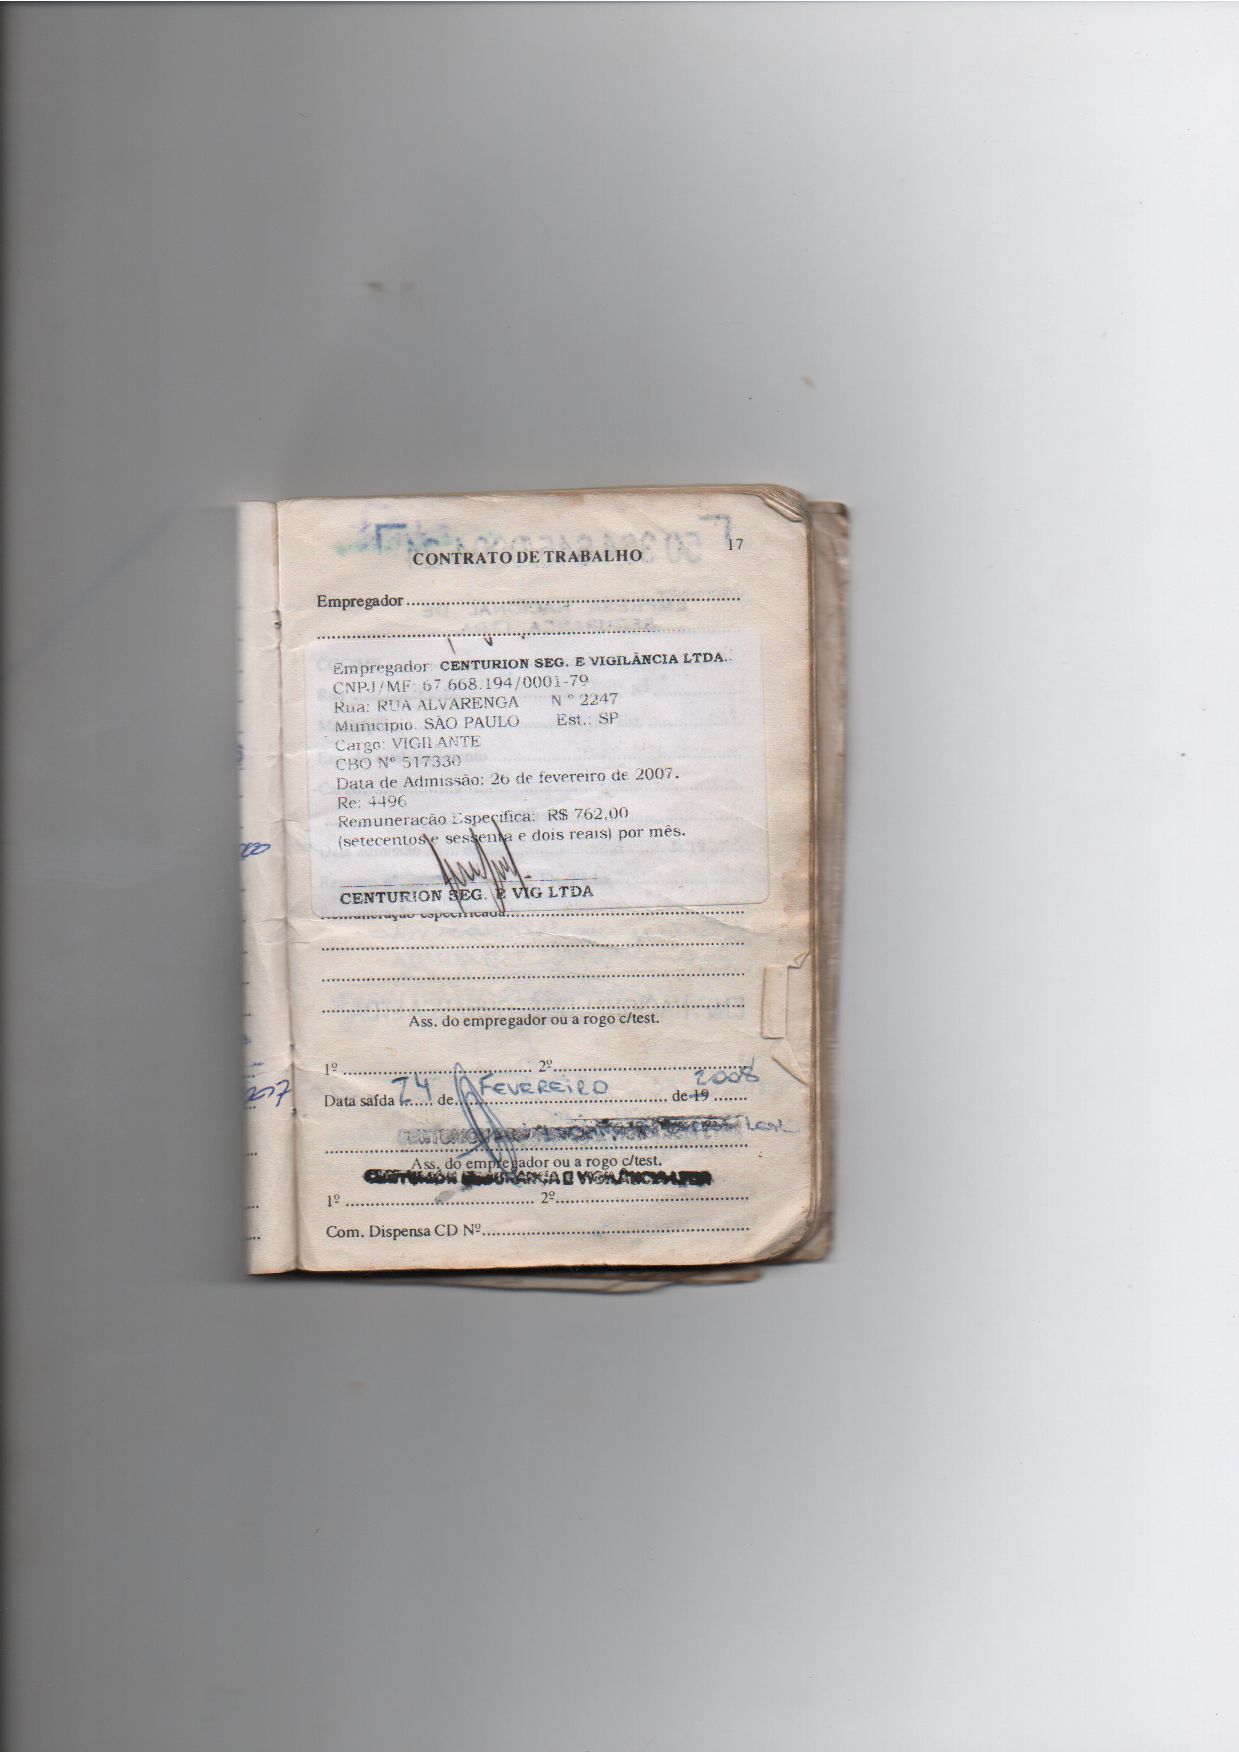 17
CONTRATO DE TRABALHO
Empregador
Empregador: CENTURION SEG. E VIGILÂNCIA LTDA.
CNPJ/MF: 67.668.194/0001-79
Rua: RUA ALVARENGA Nº 2247
Município: SÃO PAULO Est.: SP
Cargo: VIGILANTE
CBO Nº 517330
Data de Admissão: 26 de fevereiro de 2007.
Re: 4496
Remuneração Específica: R$ 762,00
(setecentos e sessenta e dois reais) por mês.
CENTURION SEG. E VIG LTDA
Remuneração especificada
Ass. do empregador ou a rogo c/test.
1º 2º
Data saída 24 de FEVEREIRO de 19 2008
Ass. do empregador ou a rogo c/test.
CENTURION SEGURANÇA E VIGILÂNCIA LTDA
1º 2º
Com. Dispensa CD Nº